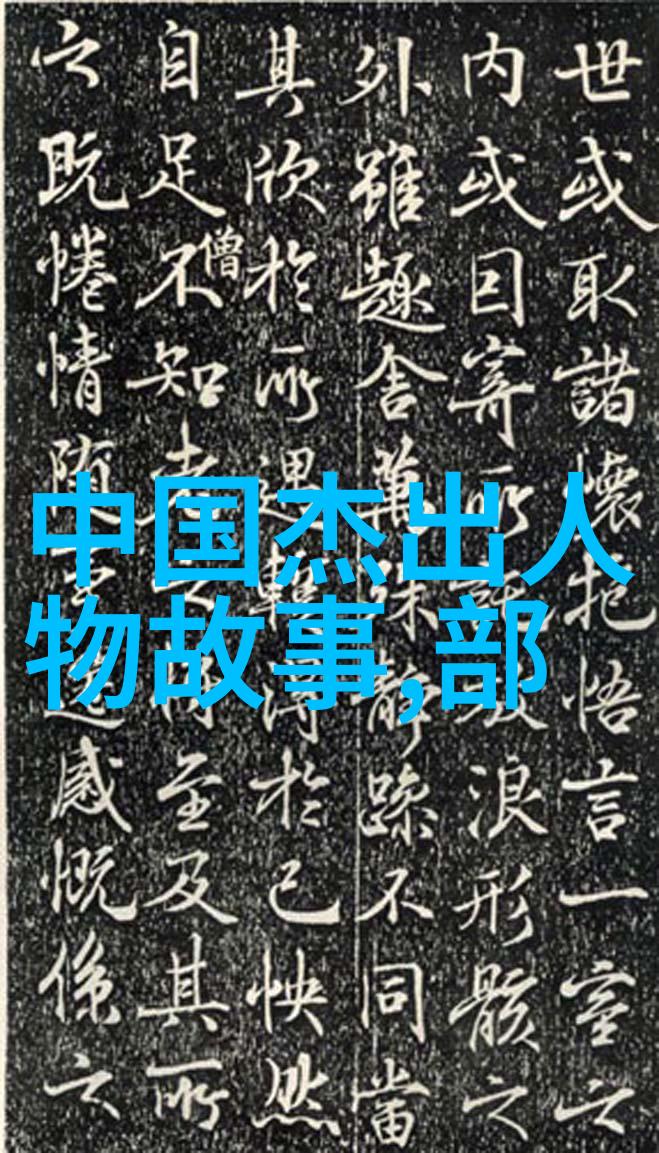 中国杰出人
物故事,部
世或取諸懷抱悟言一室之
内或因寄所放浪形骸之
外雖趣舍萬殊静躁不同當
其欣於所遇輙得於己怏然
自足不知老至及其所
僧
之既惓情随遷感慨係之